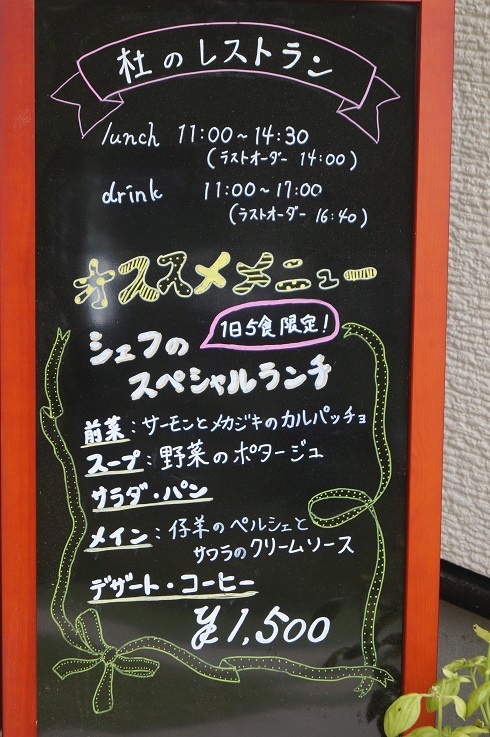 杜のレストラン
lunch 11:00~14:30
(ラストオーダー 14:00)
drink 11:00~17:00
(ラストオーダー 16:40)
オススメメニュー
1日5食限定!
シェフの
スペシャルランチ
前菜:サーモンとメカジキのカルパッチョ
スープ:野菜のポタージュ
サラダ・パン
メイン:仔羊のペルシェと
サワラのクリームソース
デザート・コーヒー
¥1,500